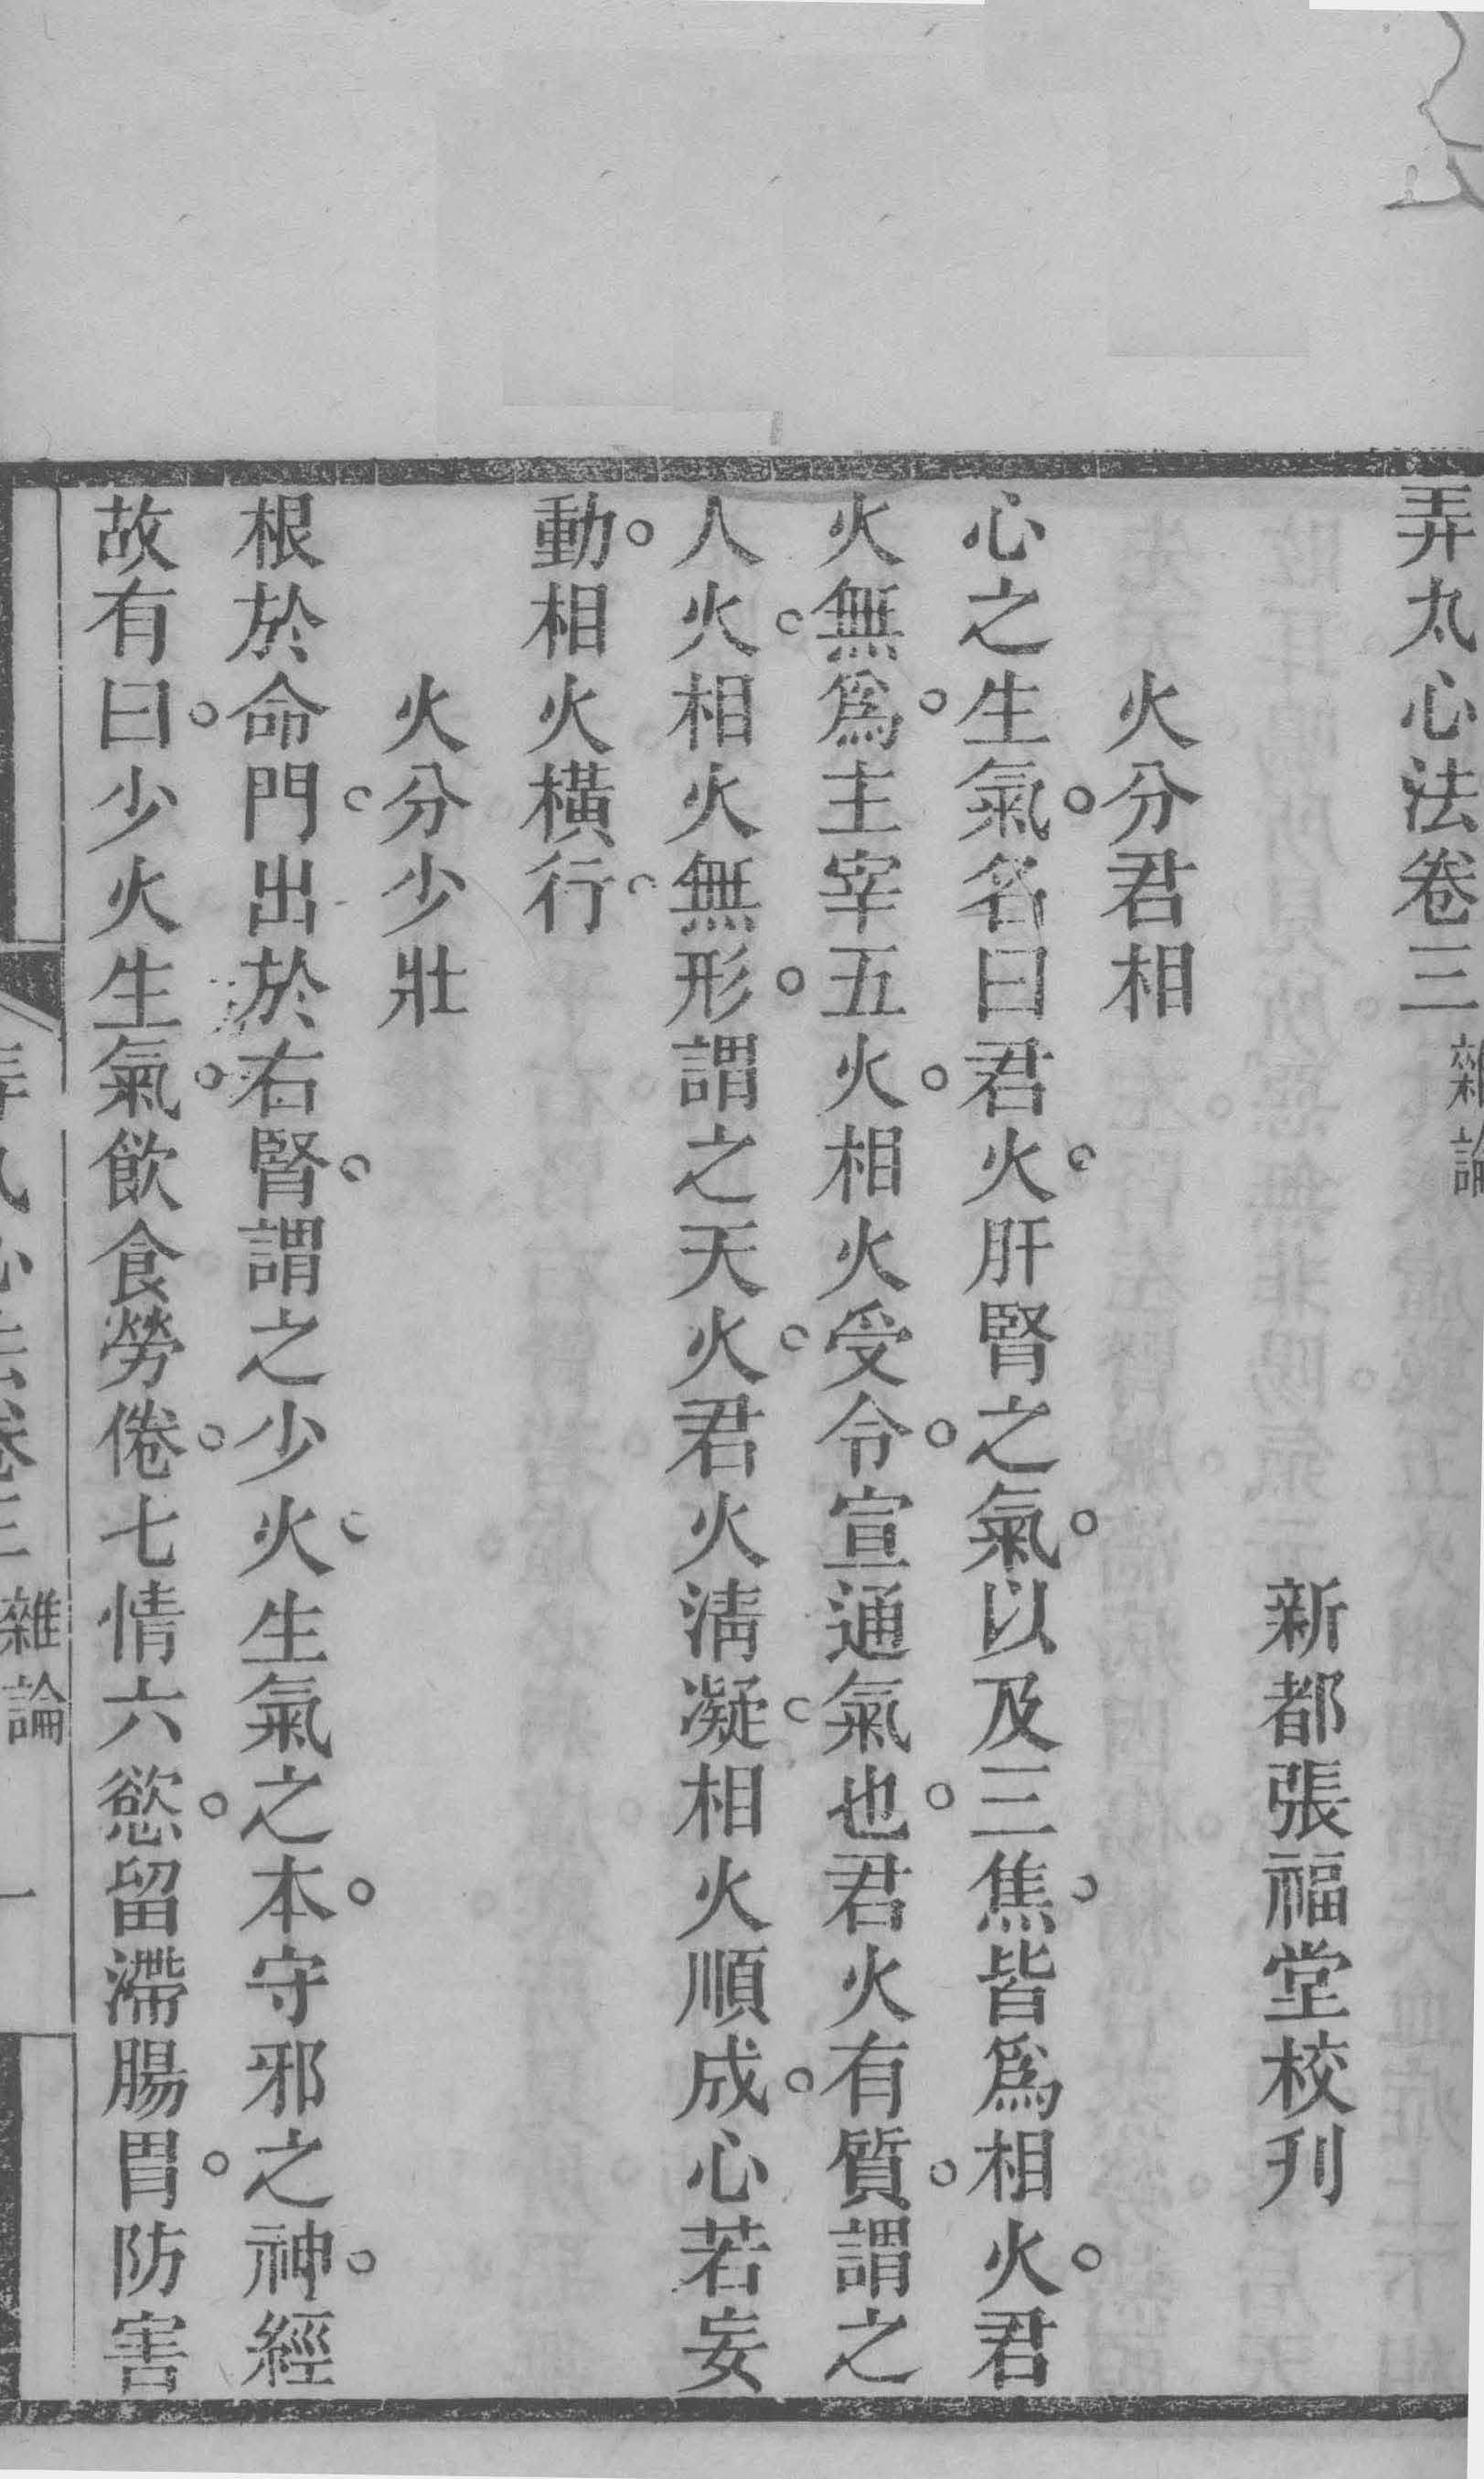 弄丸心法卷三 雜論
新都張福堂校刋
火分君相
心之生氣。名曰君火。肝腎之氣。以及三焦。皆爲相火。君
火無爲。主宰五火。相火受令。宣通氣也。君火有質。謂之
人火。相火無形。謂之天火。君火淸凝。相火順成。心若妄
動。相火橫行。
火分少壯
根於命門。出於右腎。謂之少火。生氣之本。守邪之神。經
故有曰。少火生氣。飮食勞倦。七情六慾。留滯腸胃。防害
弄丸心法卷三 雜論 一